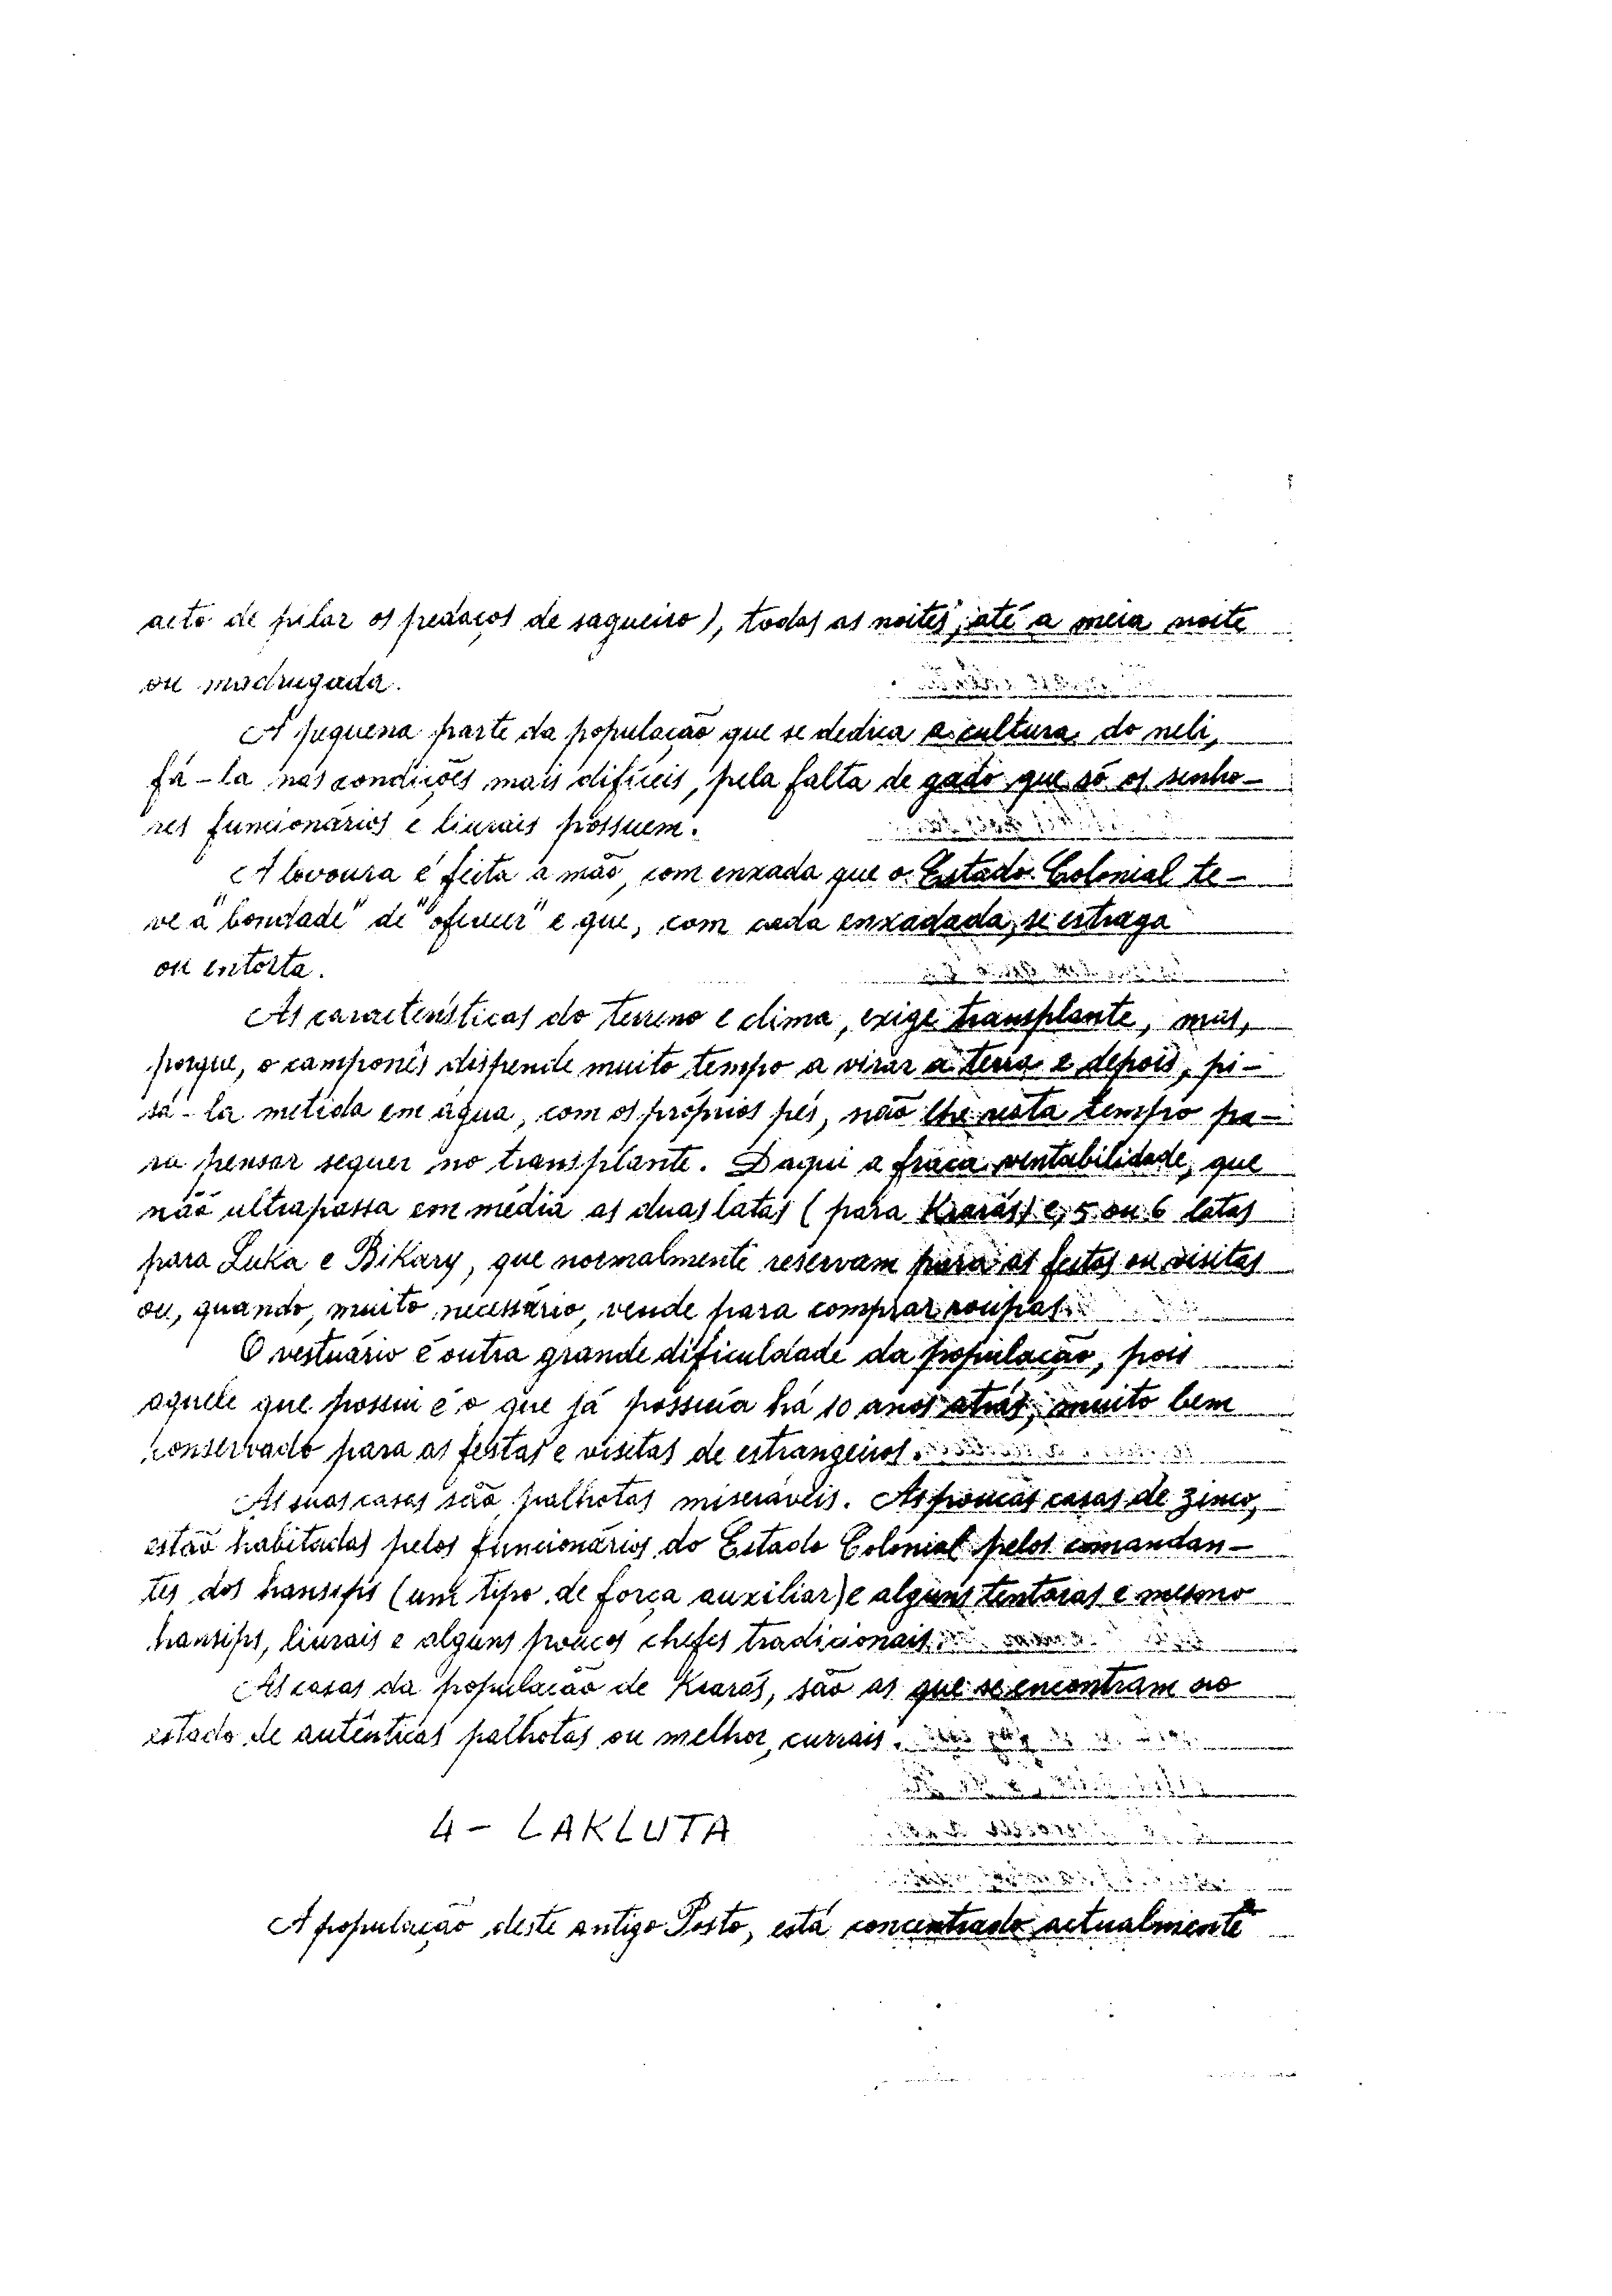 acto de pilar os pedaços de sagueiro), todas as noites, até a meia noite
ou madrugada.
A pequena parte da população que se dedica a cultura do neli,
fá-la nas condições mais difíceis, pela falta de gado que só os senho-
res funcionários e liurais possuem.
A lovoura é feita a mão, com enxada que o Estado Colonial te-
ve a "bondade" de "oferecer" e que, com cada enxadada, se estraga
ou entorta.
As características do terreno e clima, exige transplante, mas,
porque, o camponês dispende muito tempo a virar a terra e depois, pi-
sá-la metida em água, com os próprios pés, não lhe resta tempo pa-
ra pensar sequer no transplante. Daqui a fraca rentabilidade, que
não ultrapassa em média as duas latas (para Kraras) e, 5 ou 6 latas
para Luka e Bikary, que normalmente reservam para as festas ou visitas
ou, quando, muito necessário, vende para comprar roupas.
O vestuário é outra grande dificuldade da população, pois
aquele que possui é o que já possuía há 10 anos atrás, muito bem
conservado para as festas e visitas de estrangeiros.
As suas casas são palhotas miseráveis. As poucas casas de zinco,
estão habitadas pelos funcionários do Estado Colonial pelos comandan-
tes dos hansips (um tipo de força auxiliar) e alguns tentaras e mesmo
hansips, liurais e alguns poucos chefes tradicionais.
As casas da população de Kraras, são as que se encontram no
estado de autênticas palhotas ou melhor, currais.
4 - LAKLUTA
A população deste antigo Posto, está concentrado actualmente